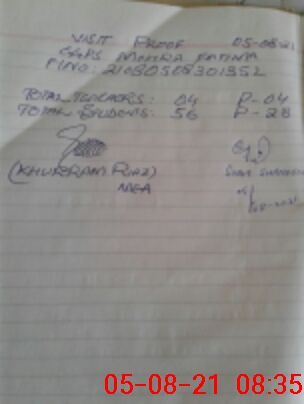 VISIT PROOF 05-08-21
GGPS MAHRA FATIMA
P/NO: 21080508301352
TOTAL TEACHERS: 04 P-04
TOTAL STUDENTS: 56 P-28
(KHURRAM RIAZ)
MEA
05-08-21 08:35